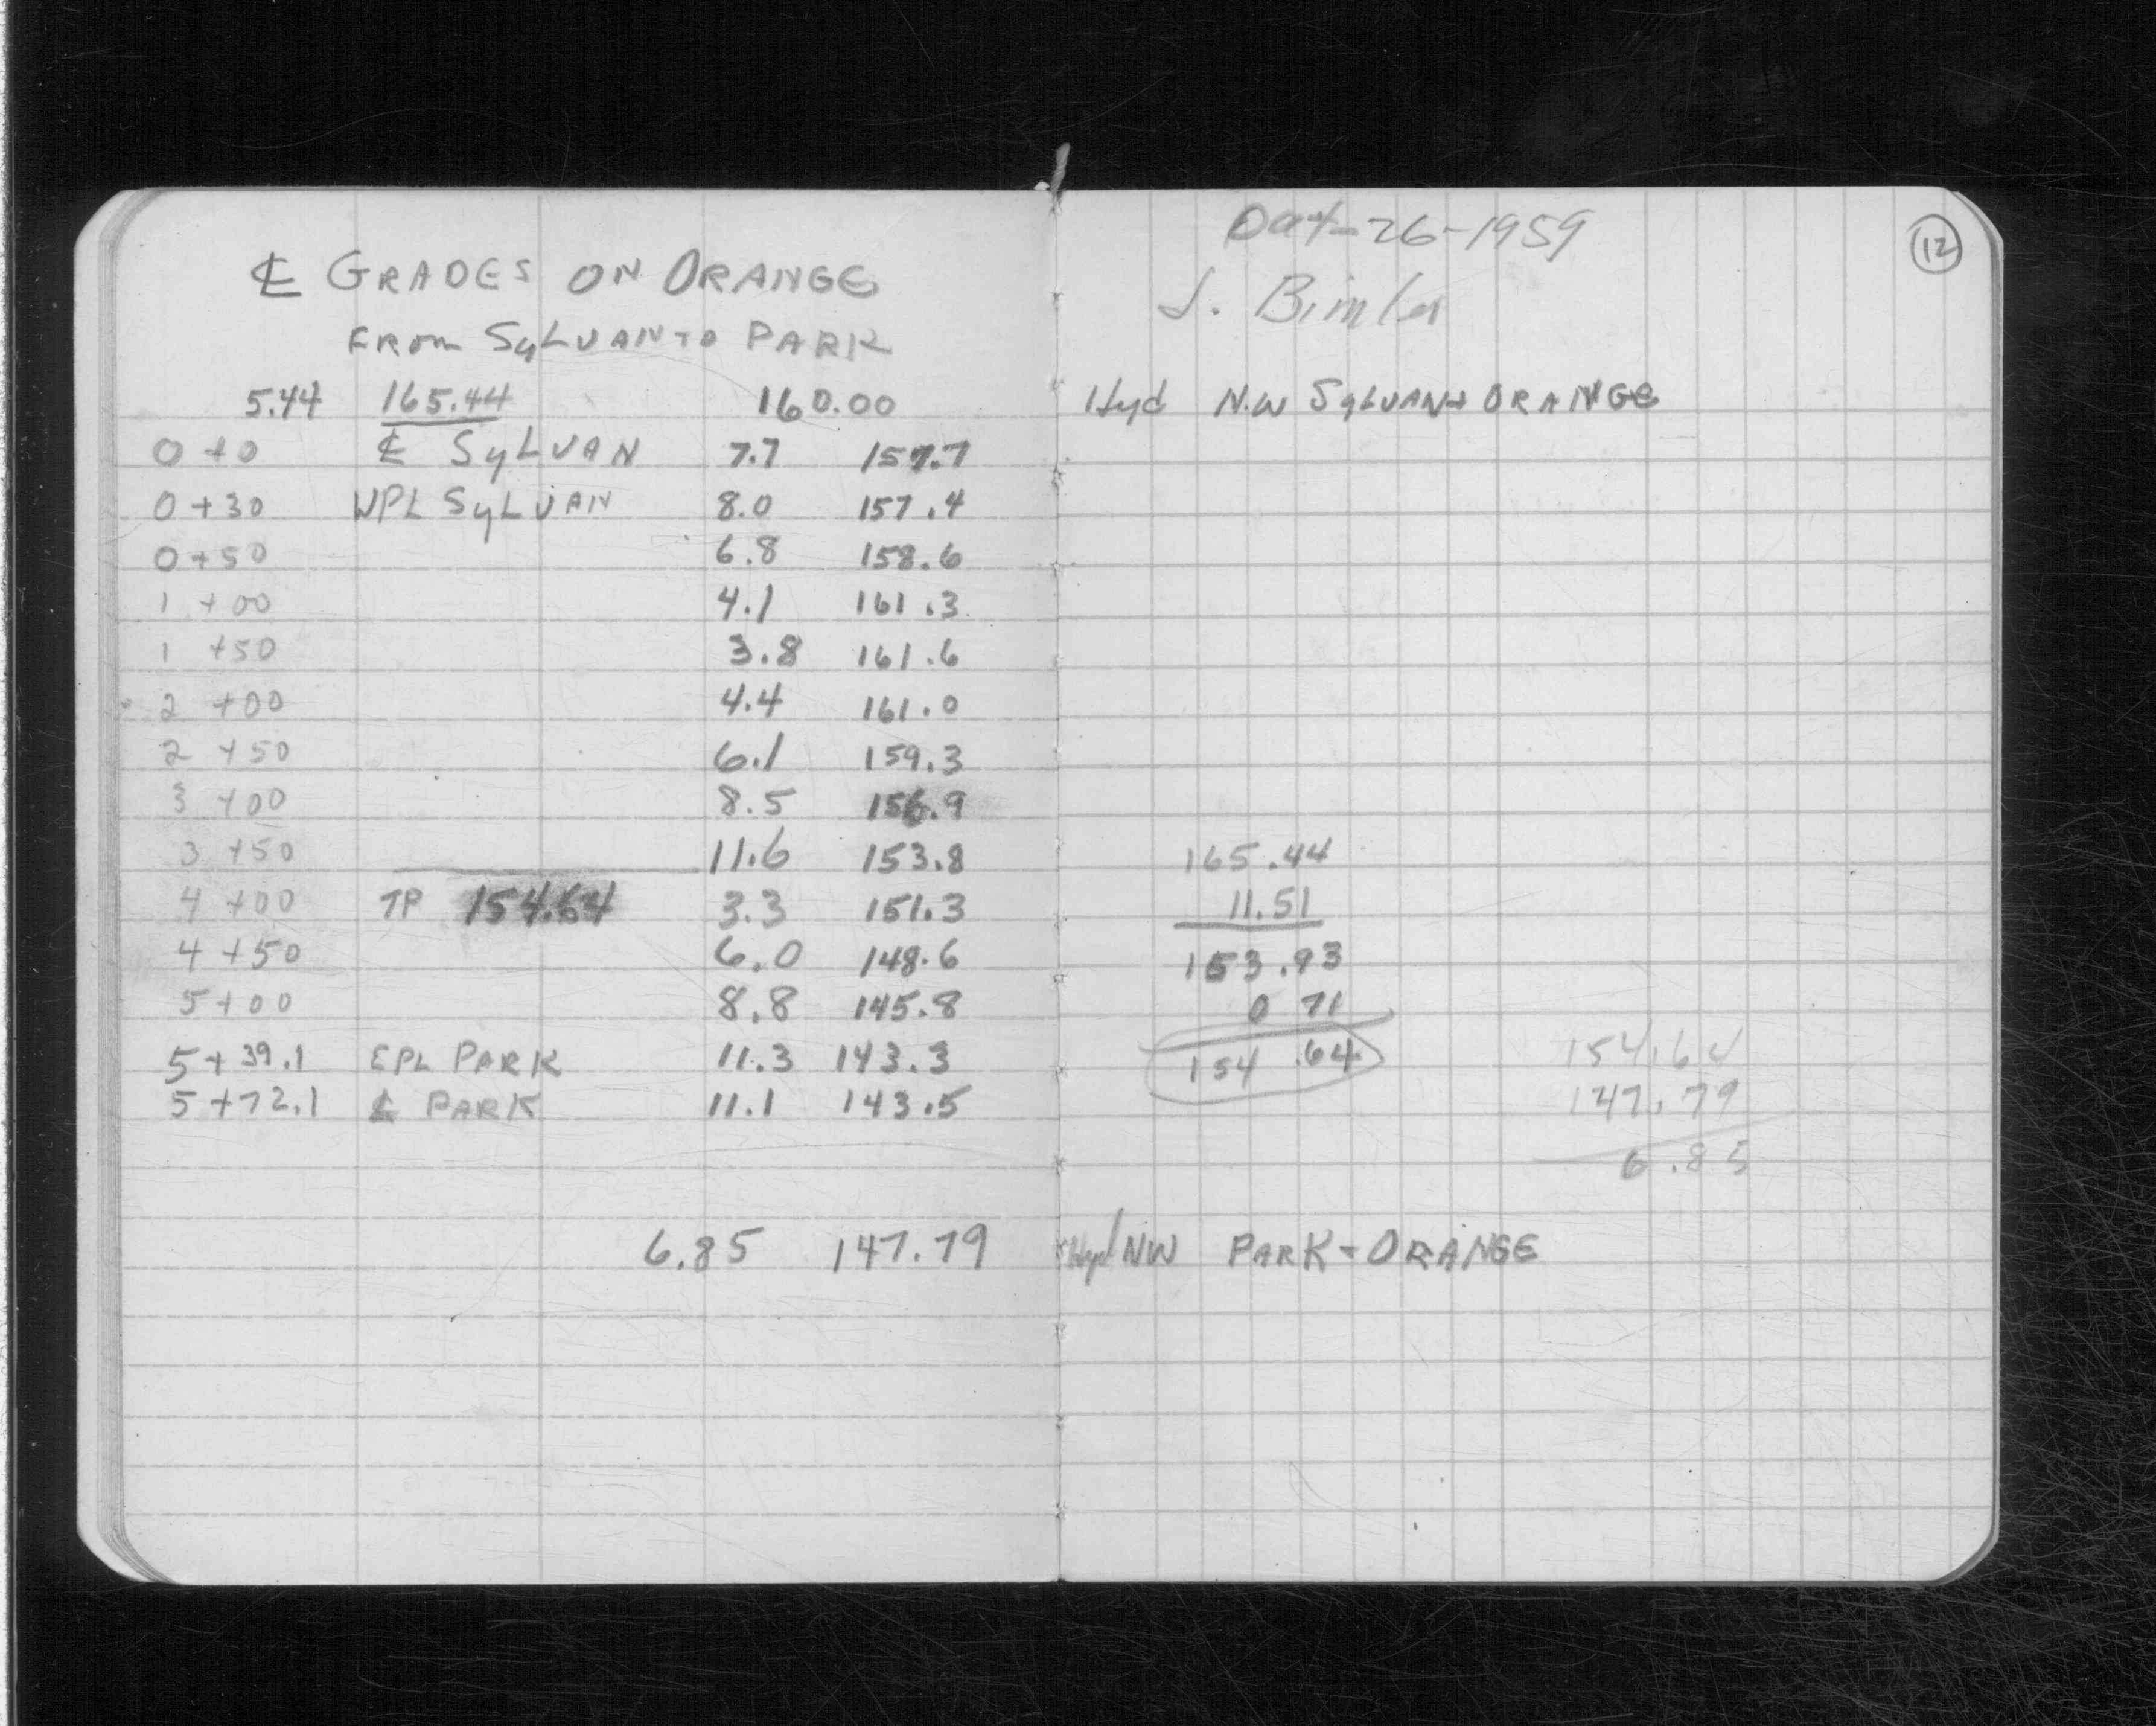 ℄ GRADES ON ORANGE
FROM SYLVAN TO PARK
5.44 165.44 160.00
0+0 ℄ SYLVAN 7.7 157.7
0+30 WPL SYLVAN 8.0 157.4
0+50 6.8 158.6
1+00 4.1 161.3
1+50 3.8 161.6
2+00 4.4 161.0
2+50 6.1 159.3
3+00 8.5 156.9
3+50 11.6 153.8
4+00 TP 154.64 3.3 151.3
4+50 6.0 148.6
5+00 8.8 145.8
5+39.1 EPL PARK 11.3 143.3
5+72.1 ℄ PARK 11.1 143.5
6.85 147.79
12
Oct-26-1959
J. Bimler
Hyd N.W SYLVAN + ORANGE
165.44
11.51
153.93
0 71
154.64
154.64
147.79
6.85
Hyd NW PARK - ORANGE